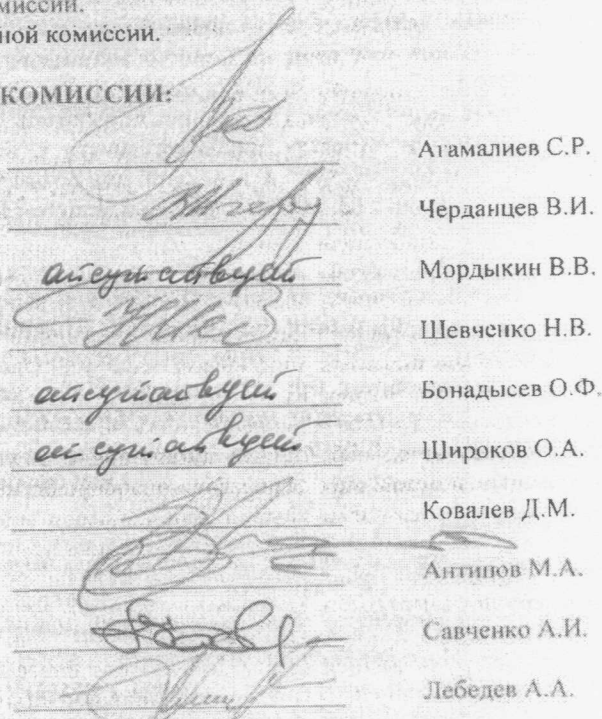 миссии.
ной комиссии.
КОМИССИИ:
Агамалиев С.Р.
Черданцев В.И.
отсутствует Мордыкин В.В.
Шевченко Н.В.
отсутствует Бонадысев О.Ф.
отсутствует Широков О.А.
Ковалев Д.М.
Антипов М.А.
Савченко А.И.
Лебедев А.А.